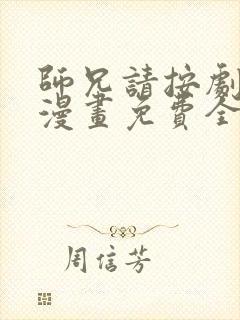 師兄請按劇
漫畫免費全
周信芳